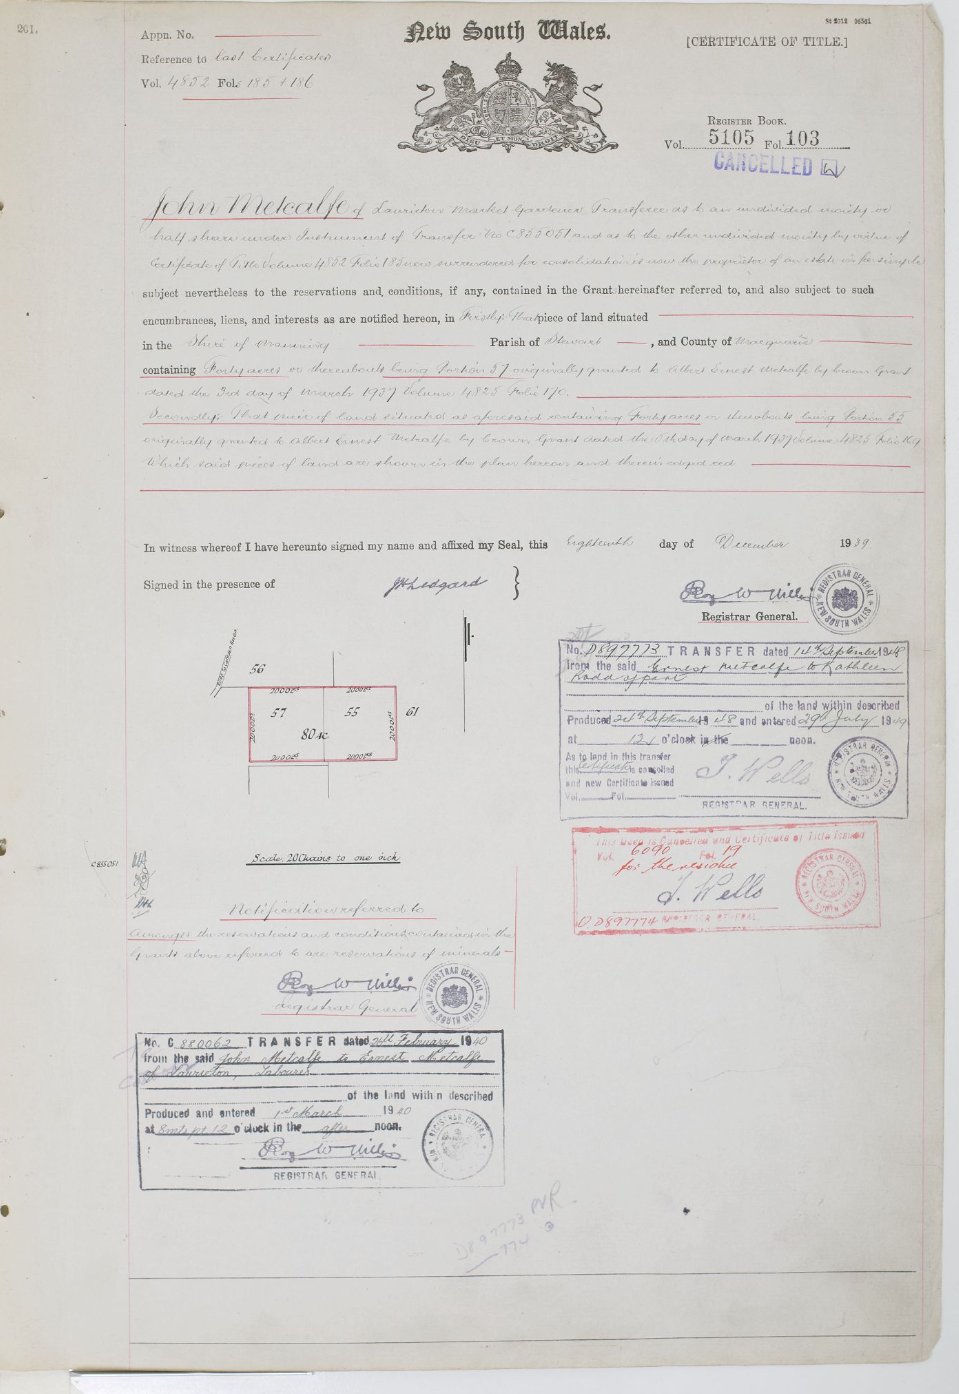 201.
St 2012
New South Wales.
[CERTIFICATE OF TITLE.]
Appn. No.
Reference to Last Certificates
Vol. 4852 Fol. 185 & 186
REGISTER BOOK.
Vol. 5105 Fol. 103
CANCELLED
John Metcalfe of Laurieton Market Gardener Transferee as to an undivided moiety or
half share under Instrument of Transfer No C855051 and as to the other undivided moiety by virtue of
Certificate of Title Volume 4852 Folio 185 now surrendered for consolidation is now the proprietor of an estate in fee simple
subject nevertheless to the reservations and conditions, if any, contained in the Grant hereinafter referred to, and also subject to such
encumbrances, liens, and interests as are notified hereon, in Firstly: That piece of land situated
in the Shire of Manning Parish of Stewart , and County of Macquarie
containing Forty acres or thereabouts being Portion 57 originally granted to Albert Ernest Metcalfe by Crown Grant
dated the 3rd day of March 1937 Volume 4825 Folio 170.
Secondly: That piece of land situated as aforesaid containing Forty acres or thereabouts being Portion 55
originally granted to Albert Ernest Metcalfe by Crown Grant dated the day of March 1937 Volume 4825 Folio 169
Which said pieces of land are shown in the plan hereon and therein edged red
In witness whereof I have hereunto signed my name and affixed my Seal, this Eighteenth day of December 1939
Signed in the presence of
Registrar General.
REGISTRAR GENERAL NEW SOUTH WALES
56
2000
2000
57
55
61
80 ac
2000
2000
Scale: 20 Chains to one inch
C855051
No. D897773 TRANSFER dated 14th September 1948
from the said Ernest Metcalfe to Kathleen
of the land within described
Produced 24th September 1948 and entered 29th July 1949
at 12 o'clock in the noon.
As to land in this transfer
this Certificate is cancelled
and new Certificate issued
Vol. Fol.
J. Wells
REGISTRAR GENERAL.
This Deed is Cancelled and Certificate of Title Issued
Vol. 6090 Fol. 19
for the residue
J. Wells
D897774 REGISTRAR GENERAL
Notification referred to
Amongst the reservations and conditions contained in the
Grants above referred to are reservations of minerals
Registrar General
REGISTRAR GENERAL NEW SOUTH WALES
No. C 880062 TRANSFER dated 24th February 1940
from the said John Metcalfe to Ernest Metcalfe
of Laurieton, Labourer
of the land within described
Produced and entered 1st March 1940
at 8 mts pt 12 o'clock in the after noon.
REGISTRAR GENERAL
D897773
774